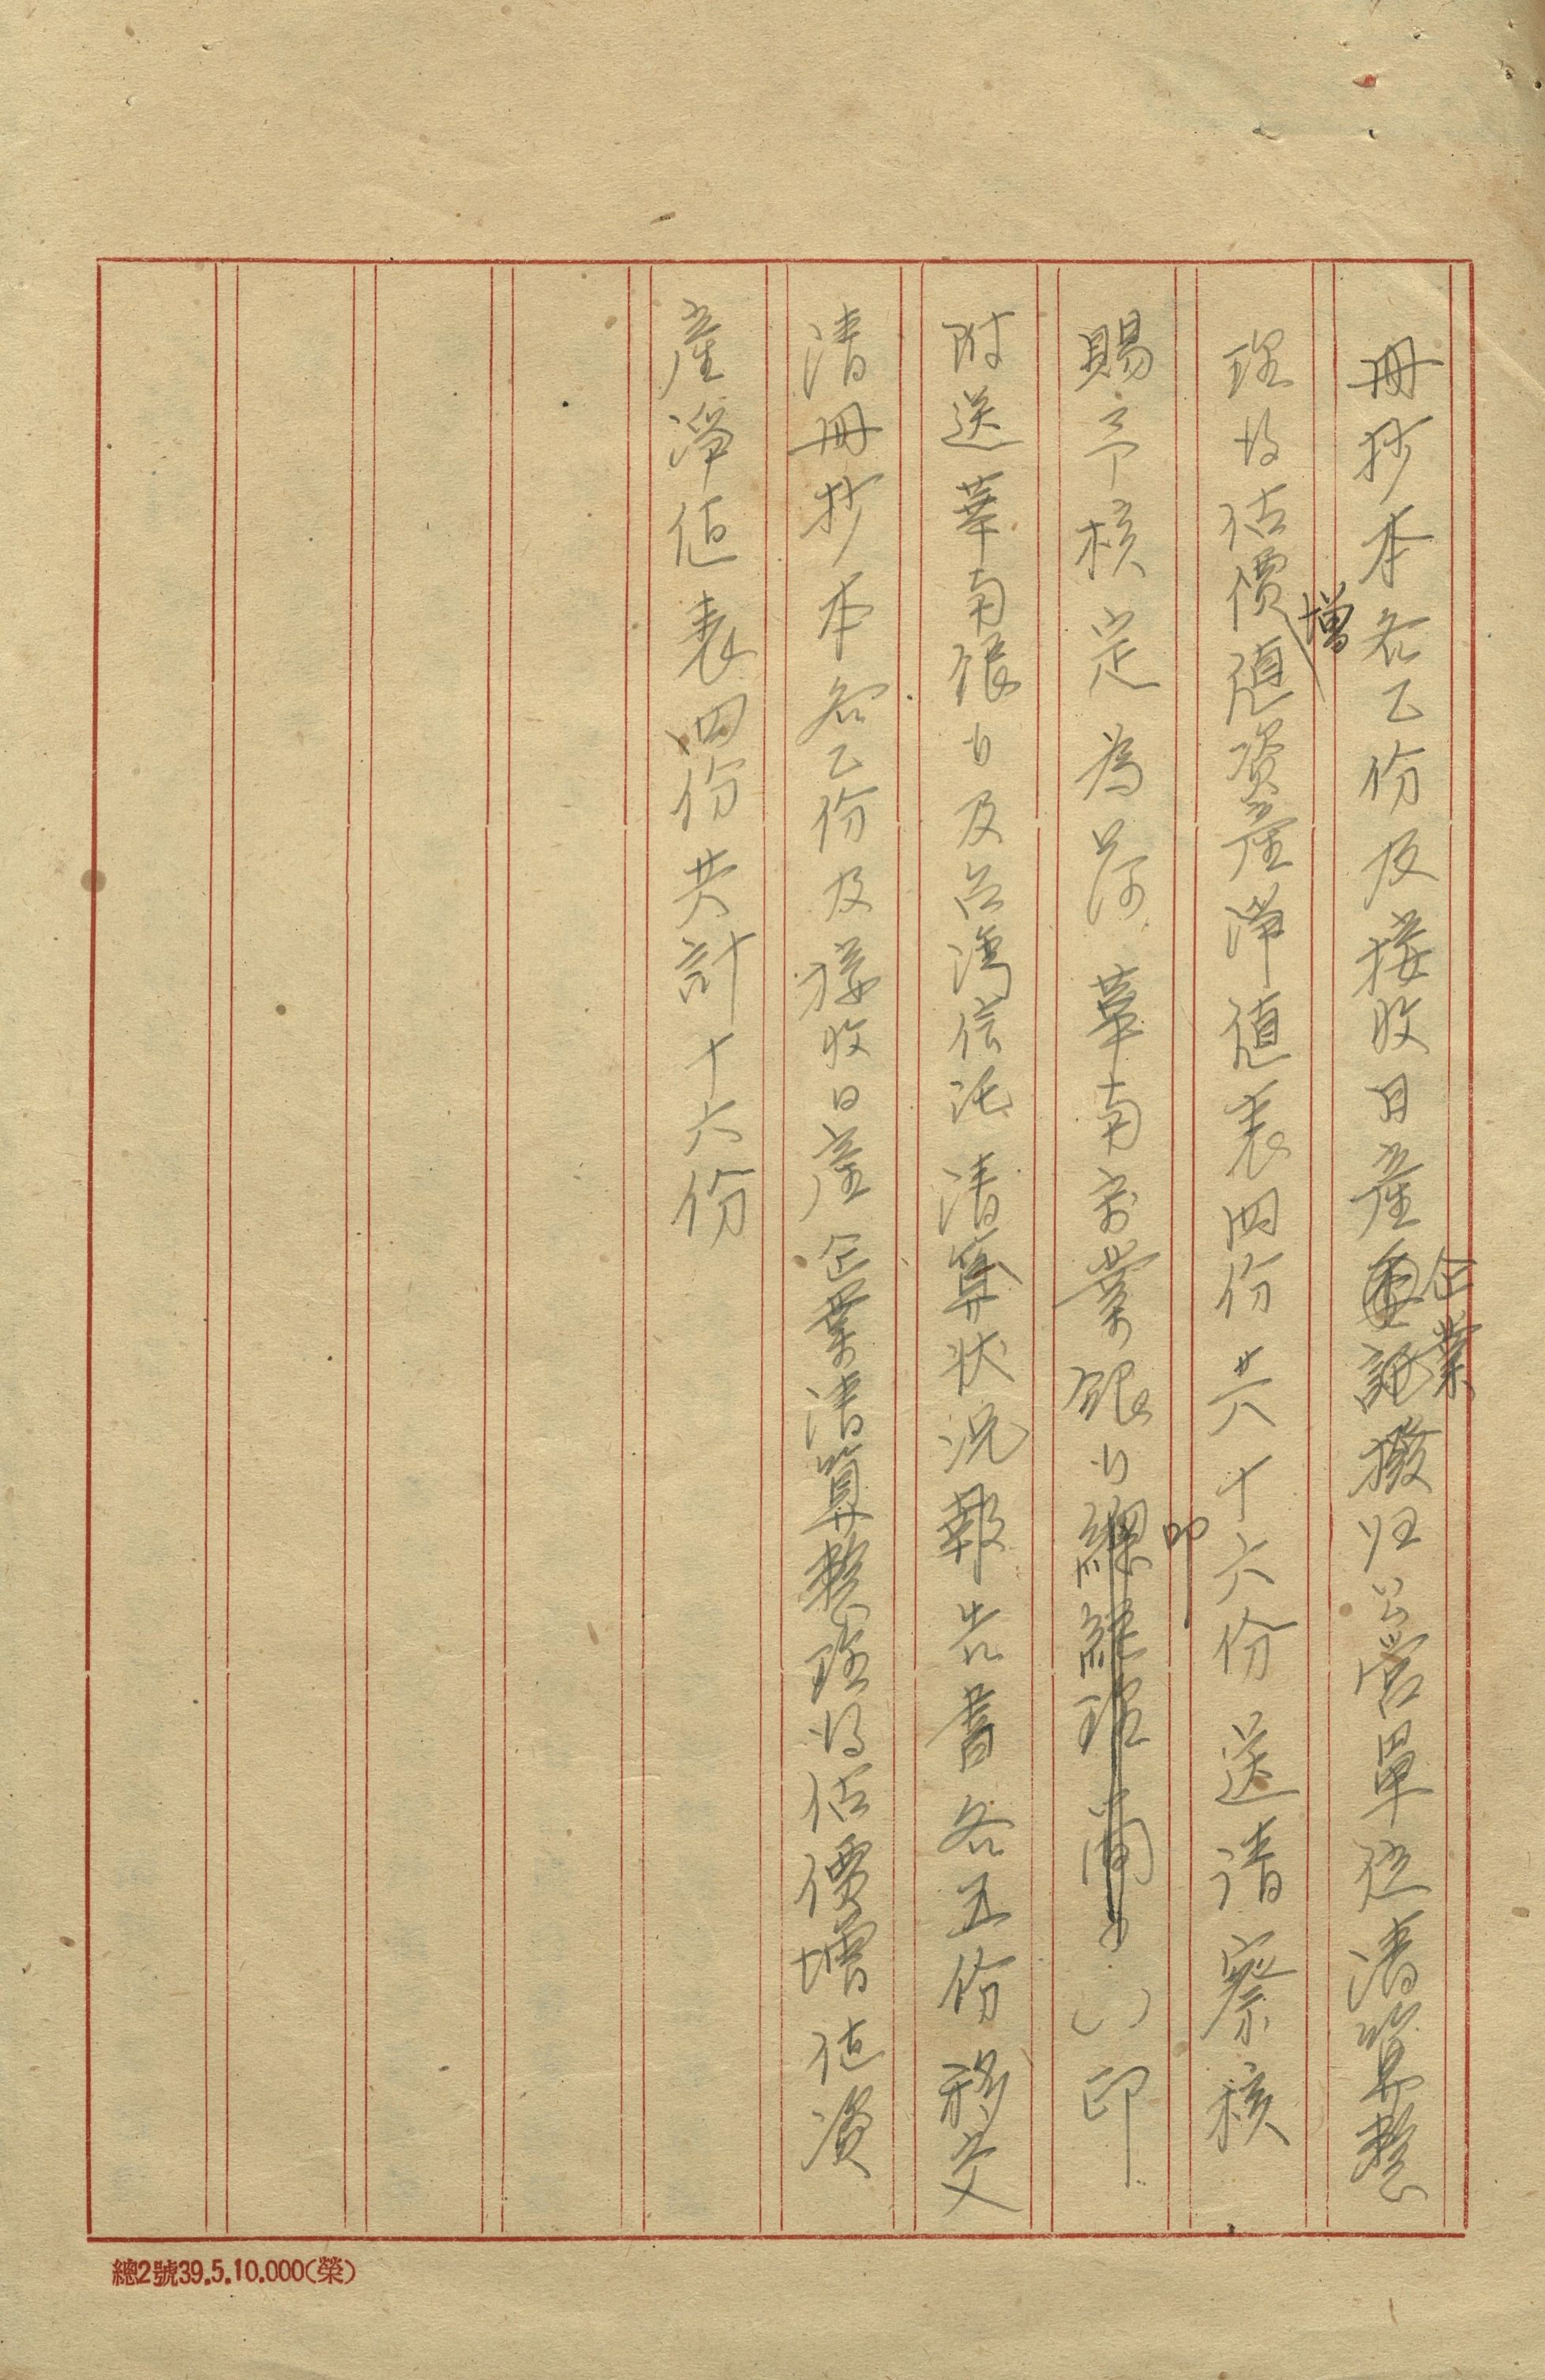 冊抄本各乙份及接收日產企業撥归公營單位清算整
理後估價增值資產淨值表四份共十六份送請察核
賜予核定為荷 華南商業銀行叩 ( ) 印
附送華南銀行及台灣信託清算狀況報告書各五份移交
清冊抄本各乙份及接收日產企業清算整理後估價增值資
產淨值表四份共計十六份
總2號39.5.10.000(榮)